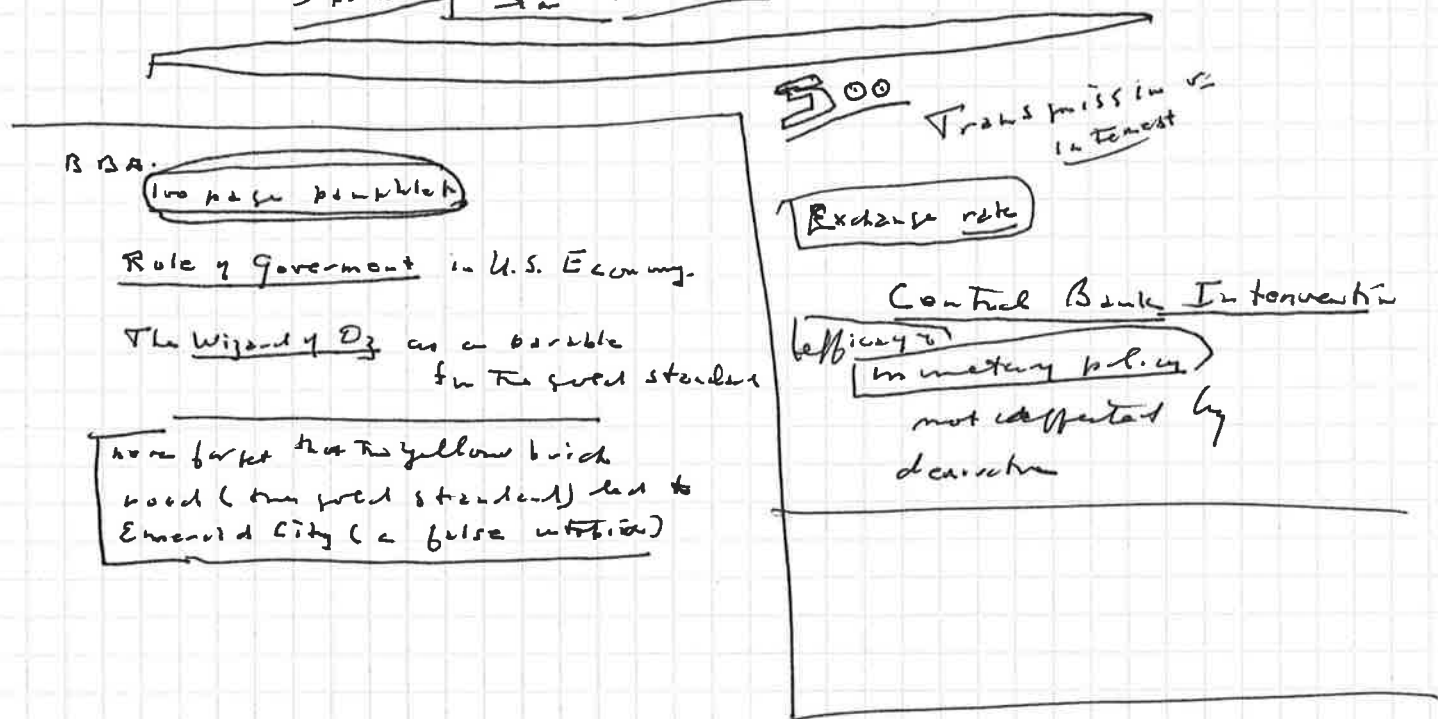 B B A.
100 page pamphlet
Role of Goverment in U.S. Economy.
The Wizard of Oz as a parable
for the gold standard
forget that the yellow brick
road (the gold standard) led to
Emerald City (a false utopia)
Transmission
interest
Exchange rate
Central Bank Intervention
efficacy of
monetary policy
not affected by